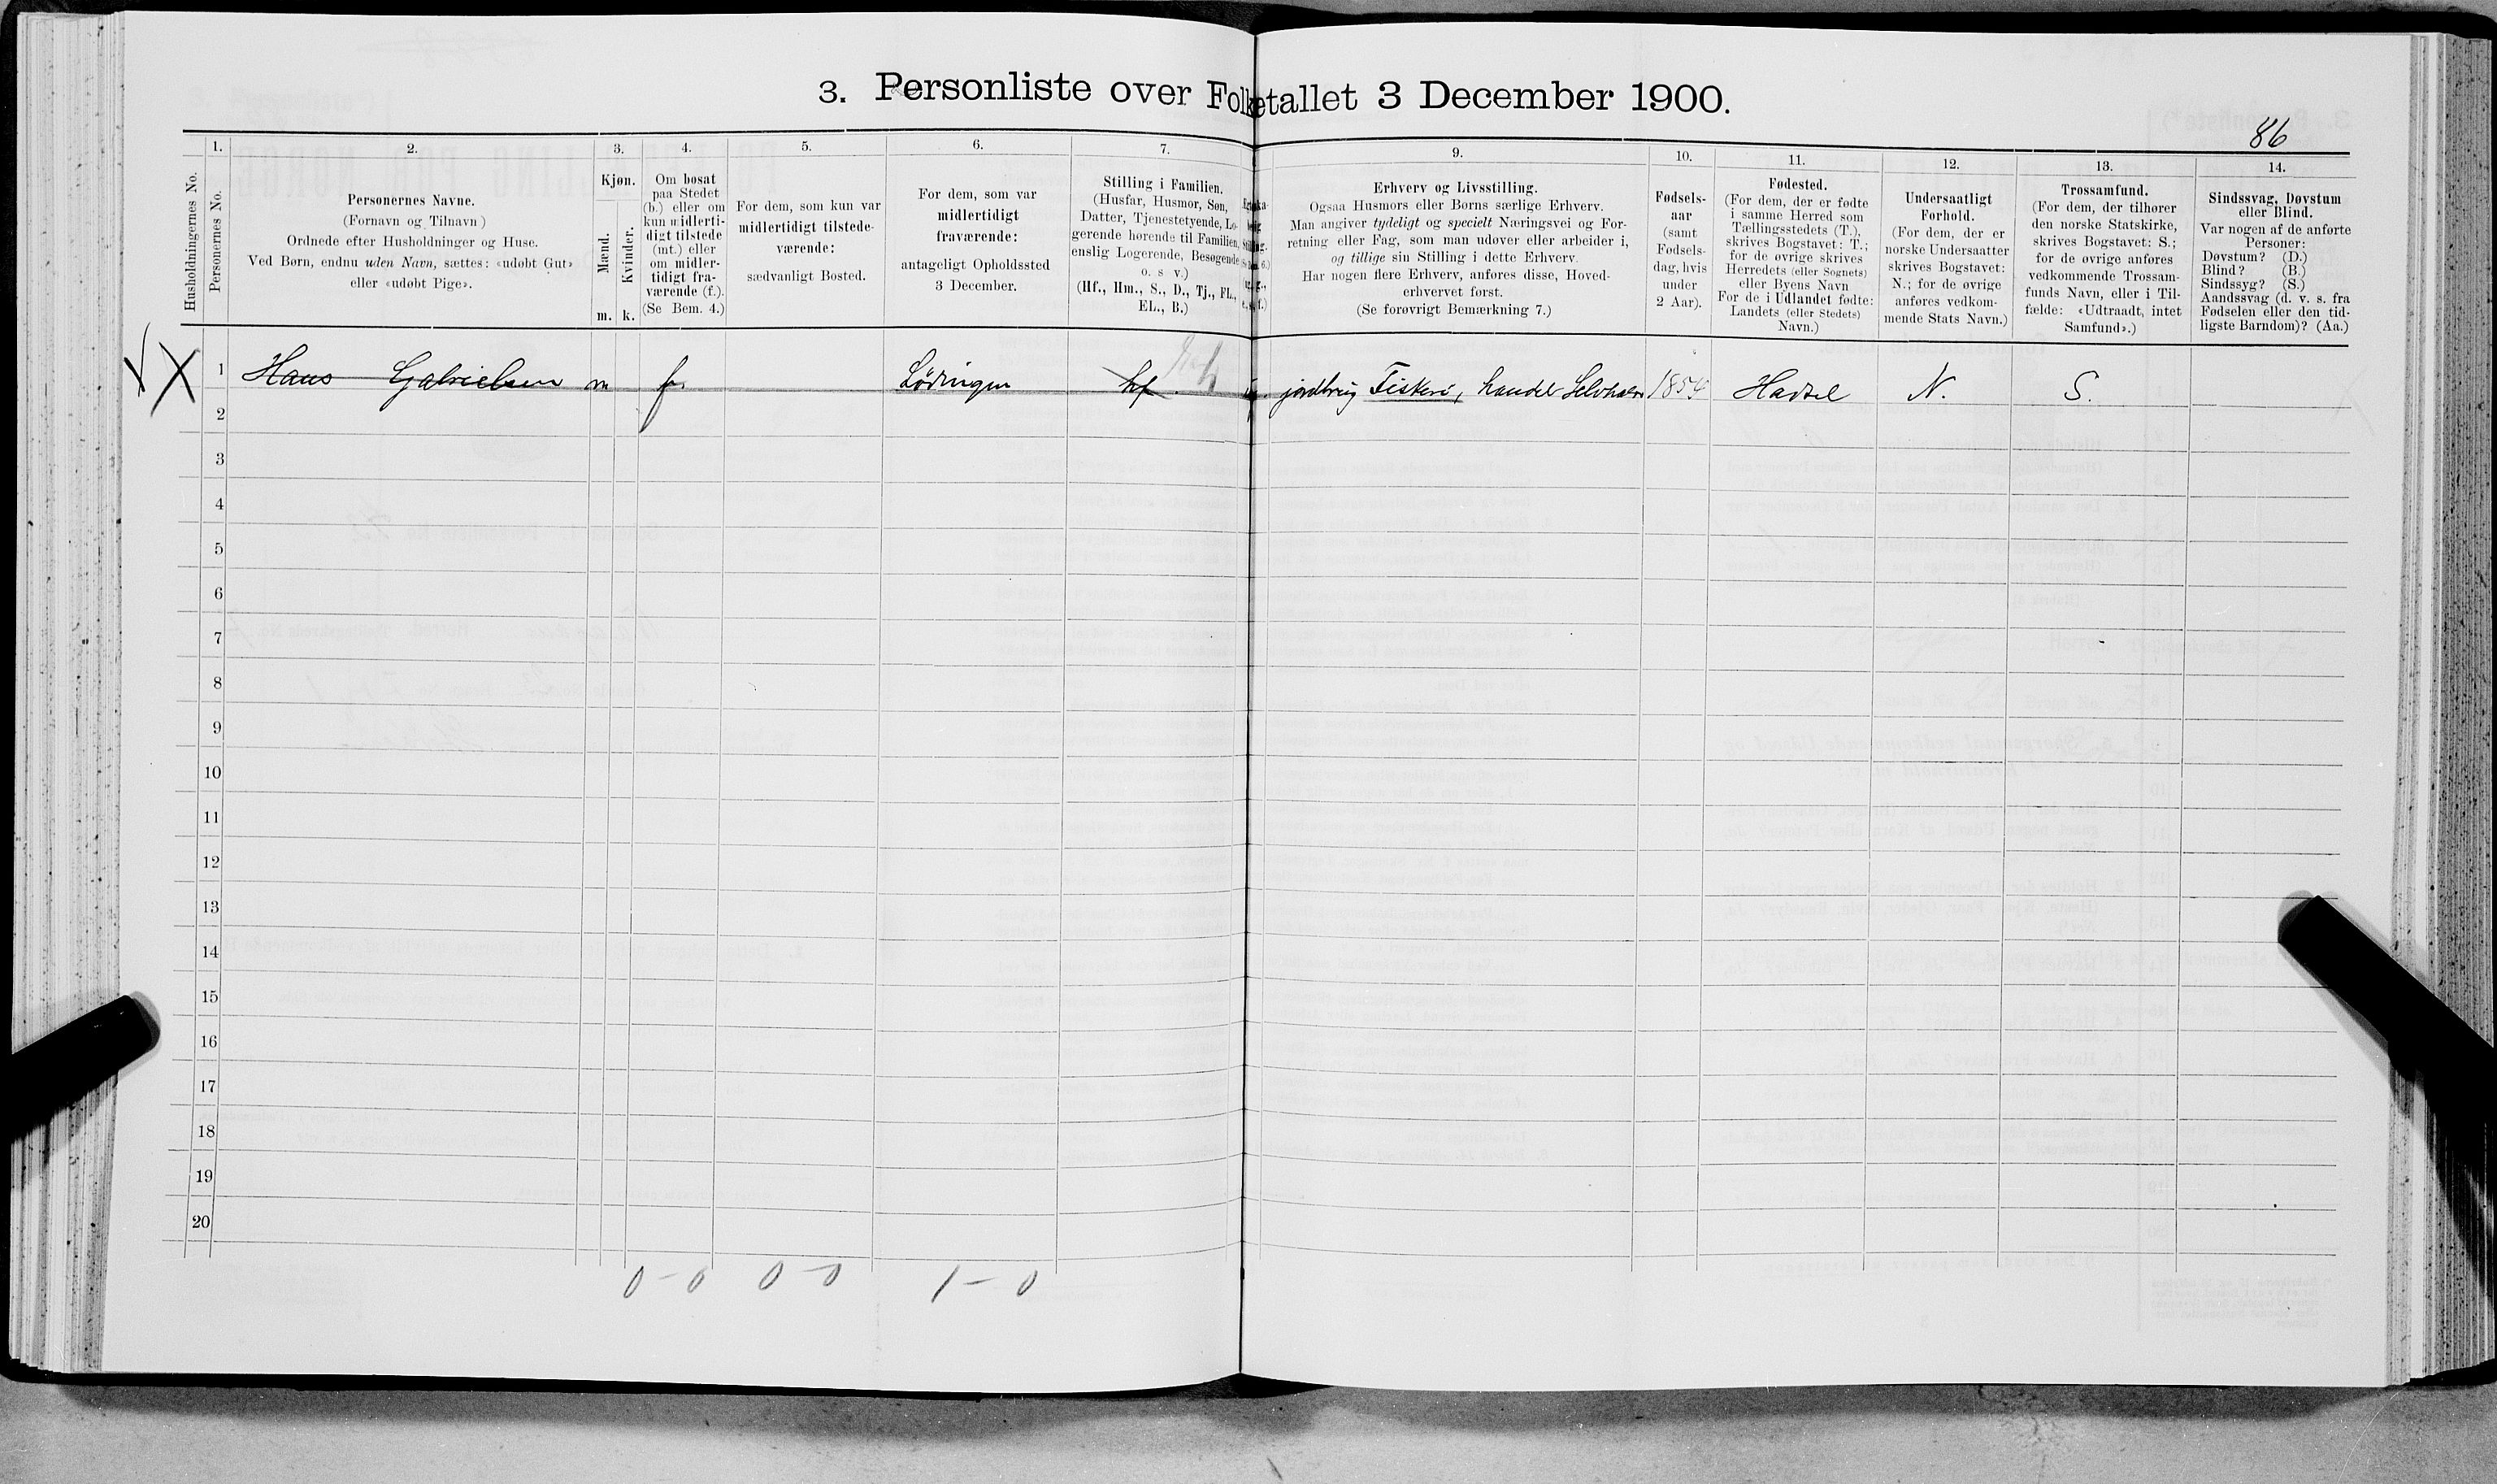 3. Personliste over Folketallet 3 December 1900.
86
Husholdningernes No.
1.
Personernes No.
2.
Personernes Navne.
(Fornavn og Tilnavn)
Ordnede efter Husholdninger og Huse.
Ved Børn, endnu uden Navn, sættes: «udøbt Gut»
eller «udøbt Pige».
3.
Kjøn.
Mænd.
Kvinder.
m. k.
4.
Om bosat
paa Stedet
(b.) eller om
kun midlerti-
digt tilstede
(mt.) eller
om midler-
tidigt fra-
værende (f.).
(Se Bem. 4.)
5.
For dem, som kun var
midlertidigt tilstede-
værende:
sædvanligt Bosted.
6.
For dem, som var
midlertidigt
fraværende:
antageligt Opholdssted
3 December.
7.
Stilling i Familien.
(Husfar, Husmor, Søn,
Datter, Tjenestetyende, Lo-
gerende hørende til Familien,
enslig Logerende, Besøgende
o. s v.)
(Hf., Hm., S., D., Tj., FL.,
EL., B.)
9.
Erhverv og Livsstilling.
Ogsaa Husmors eller Børns særlige Erhverv.
Man angiver tydeligt og specielt Næringsvei og For-
retning eller Fag, som man udøver eller arbeider i,
og tillige sin Stilling i dette Erhverv.
Har nogen flere Erhverv, anføres disse, Hoved-
erhvervet først.
(Se forøvrigt Bemærkning 7.)
10.
Fødsels-
aar
(samt
Fødsels-
dag, hvis
under
2 Aar).
11.
Fødested.
(For dem, der er fødte
i samme Herred som
Tællingsstedets (T.),
skrives Bogstavet: T.;
for de øvrige skrives
Herredets (eller Sognets)
eller Byens Navn
For de i Udlandet fødte:
Landets (eller Stedets)
Navn.)
12.
Undersaatligt
Forhold.
(For dem, der er
norske Undersaatter
skrives Bogstavet:
N.; for de øvrige
anføres vedkom-
mende Stats Navn.)
13.
Trossamfund.
(For dem, der tilhører
den norske Statskirke,
skrives Bogstavet: S.;
for de øvrige anføres
vedkommende Trossam-
funds Navn, eller i Til-
fælde: «Udtraadt, intet
Samfund».)
14.
Sindssvag, Døvstum
eller Blind.
Var nogen af de anførte
Personer:
Døvstum? (D.)
Blind? (B.)
Sindssyg? (S.)
Aandssvag (d. v. s. fra
Fødselen eller den tid-
ligste Barndom)? (Aa.)
1 Hans Gabrielsen m f. Lödingen hf. jordbrug Fiskeri, handel Selvholden 1854 Hadsel N. S.
2
3
4
5
6
7
8
9
10
11
12
13
14
15
16
17
18
19
20
0 - 0 0 - 0 1 - 0